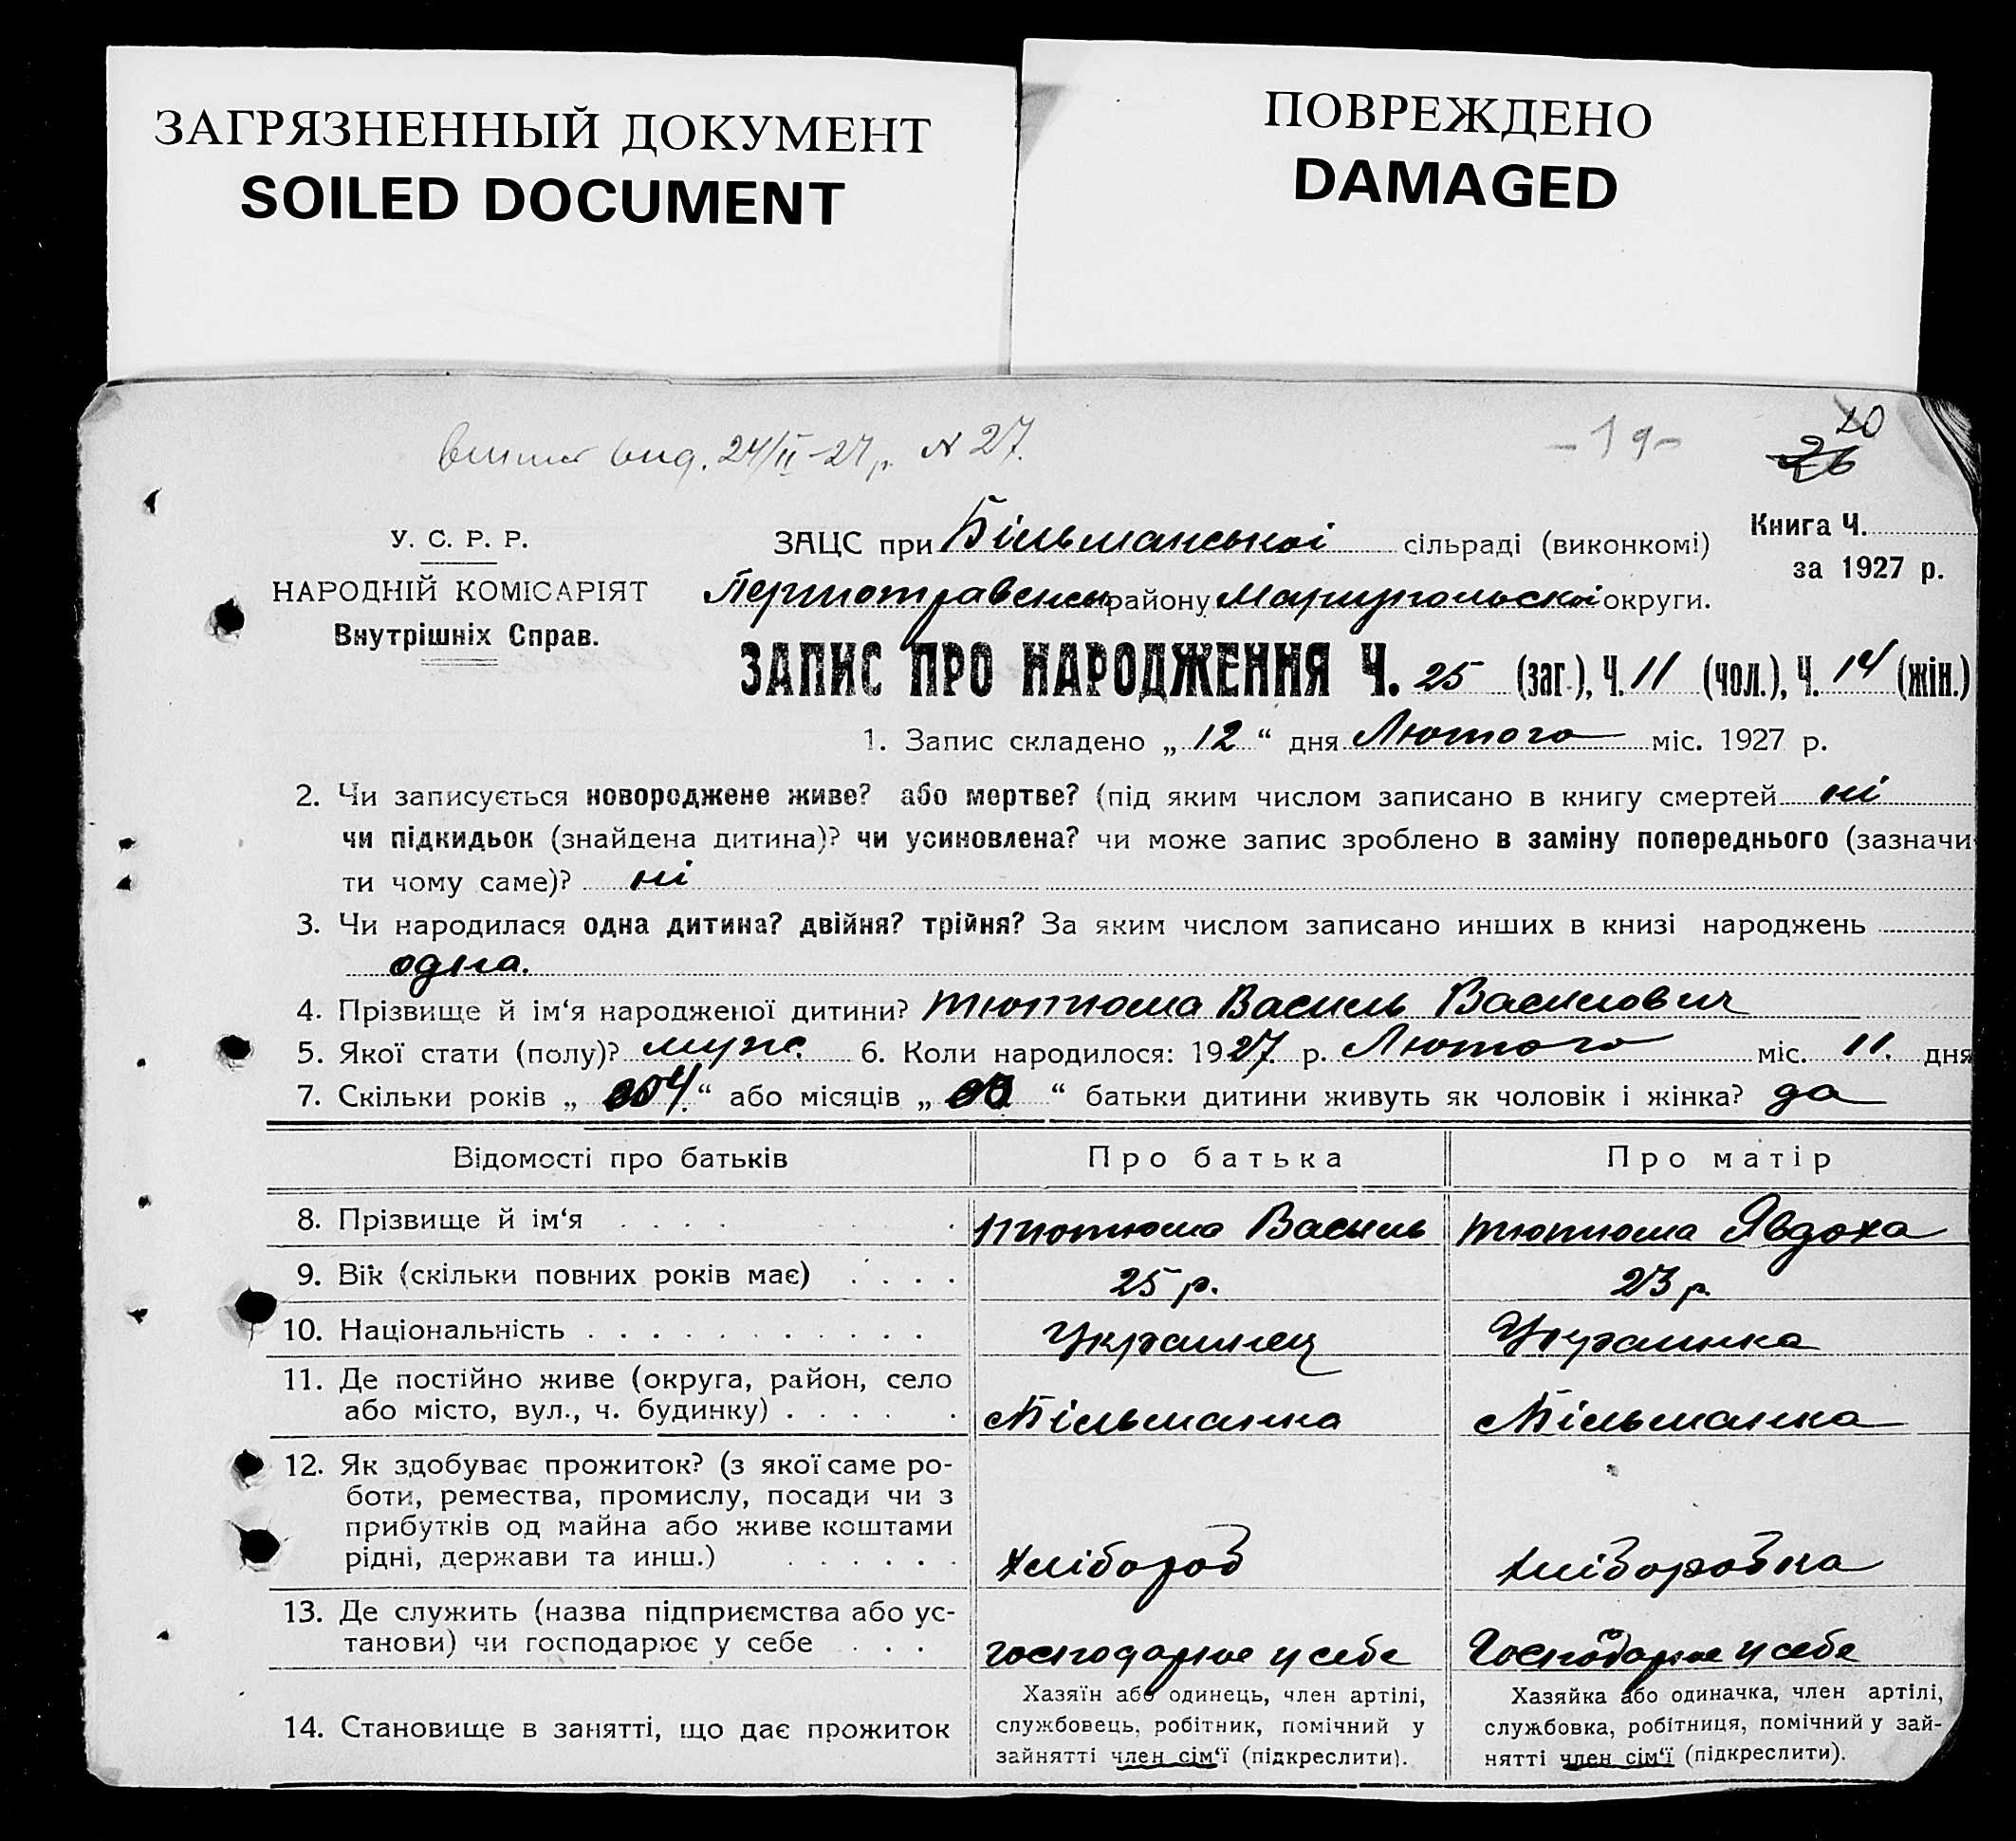 ЗАГРЯЗНЕННЫЙ ДОКУМЕНТ
SOILED DOCUMENT
ПОВРЕЖДЕНО
DAMAGED
вид. 24/II-27 р. № 27.
-19-
20
26
У. С. Р. Р.
НАРОДНІЙ КОМІСАРІЯТ
Внутрішніх Справ.
Книга Ч.
за 1927 р.
ЗАЦС при Більманської сільраді (виконкомі)
району Маріупольскої округи.
ЗАПИС ПРО НАРОДЖЕННЯ Ч. 25 (заг.), Ч. 11 (чол.), Ч. 14 (жін.)
1. Запис складено „ 12 “ дня Лютого міс. 1927 р.
2. Чи записується новороджене живе? або мертве? (під яким числом записано в книгу смертей ні
чи підкидьок (знайдена дитина)? чи усиновлена? чи може запис зроблено в заміну попереднього (зазначи-
ти чому саме)? ні
3. Чи народилася одна дитина? двійня? трійня? За яким числом записано инших в книзі народжень
одна.
4. Прізвище й ім‘я народженої дитини? Тютюма Василь Василович
5. Якої стати (полу)? муж. 6. Коли народилося: 1927 р. Лютого міс. 11. дня
7. Скільки років „ “ або місяців „ “ батьки дитини живуть як чоловік і жінка? да
Відомості про батьків Про батька Про матір
8. Прізвище й ім‘я Тютюма Василь Тютюма Явдоха
9. Вік (скільки повних років має) 25 р. 23 р.
10. Національність Украинец Украинка
11. Де постійно живе (округа, район, село
або місто, вул., ч. будинку) Більманка Більманка
12. Як здобуває прожиток? (з якої саме ро-
боти, ремества, промислу, посади чи з
прибутків од майна або живе коштами
рідні, держави та инш.) хлібороб хліборобка
13. Де служить (назва підприємства або ус-
танови) чи господарює у себе господарює у себе Господарює у себе
14. Становище в занятті, що дає прожиток
Хазяїн або одинець, член артілі,
службовець, робітник, помічний у
зайнятті член сім‘ї (підкреслити).
Хазяйка або одиначка, член артілі,
службовка, робітниця, помічний у зай-
нятті член сім‘ї (підкреслити).